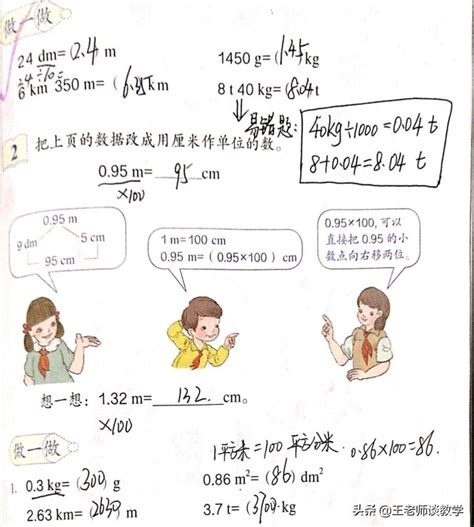 做一做
24 dm=(2.4) m 1450 g=(1.45)kg
24÷10=
6 km 350 m=(6.35)km 8 t 40 kg=(8.04)t
易错题:
40kg÷1000=0.04 t
8+0.04=8.04 t
2 把上页的数据改成用厘米作单位的数。
0.95 m= 95 cm
×100
0.95 m
9 dm 5 cm
95 cm
1 m=100 cm
0.95 m=(0.95×100) cm
0.95×100,可以
直接把 0.95 的小
数点向右移两位。
想一想:1.32 m= 132 cm。
×100
做一做
1平方米=100平方分米. 0.86×100=86.
1. 0.3 kg=(300) g 0.86 m²=(86) dm²
2.63 km=(2630) m 3.7 t=(3700) kg
头条 @王老师谈教学